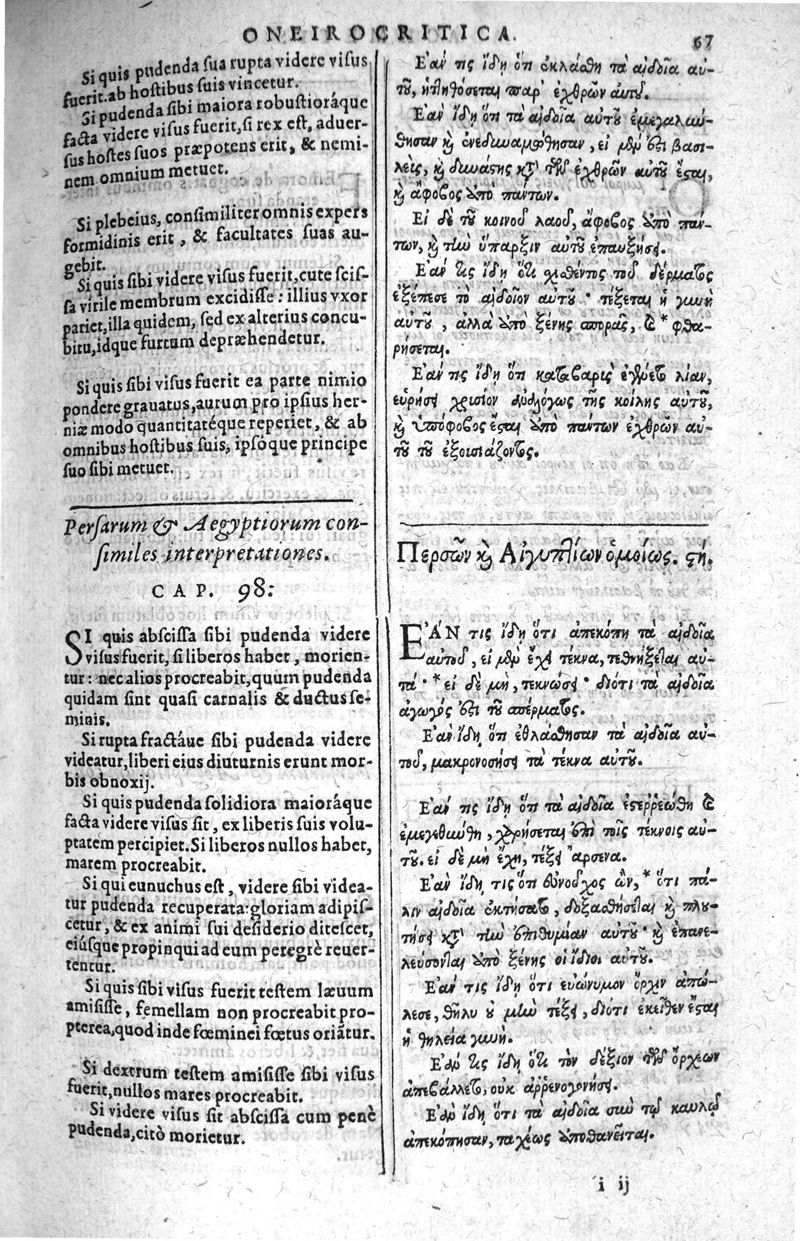 ONEIROCRITICA.
67
Si quis pudenda sua rupta videre visus
fuerit.ab hostibus suis vincetur.
Si pudenda sibi maiora robustioráque
facta videre visus fuerit, si rex est, aduer-
sus hostes suos præpotens erit, & nemi-
nem omnium metuet.
Si plebeius, consimiliter omnis expers
formidinis erit, & facultates suas au-
gebit.
Si quis sibi videre visus fuerit, cute scis-
sa virile membrum excidisse: illius vxor
pariet, illa quidem, sed ex alterius concu-
bitu, idque furtum depræhendetur.
Si quis sibi visus fuerit ea parte nimio
pondere grauatus, aurum pro ipsius her-
niæ modo quantitatéque reperiet, & ab
omnibus hostibus suis, ipsóque principe
suo sibi metuet.
Persarum & Aegyptiorum con-
similes interpretationes.
CAP. 98:
SI quis abscissa sibi pudenda videre
visus fuerit, si liberos habet, morien-
tur: nec alios procreabit, quum pudenda
quidam sint quasi carnalis & ductus se-
minis.
Si rupta fractáue sibi pudenda videre
videatur, liberi eius diuturnis erunt mor-
bis obnoxij.
Si quis pudenda solidiora maioráque
facta videre visus sit, ex liberis suis volu-
ptatem percipiet. Si liberos nullos habet,
marem procreabit.
Si qui eunuchus est, videre sibi videa-
tur pudenda recuperata: gloriam adipis-
cetur, & ex animi sui desiderio ditescet,
eiúsque propinqui ad eum peregrè reuer-
tentur.
Si quis sibi visus fuerit testem læuum
amisisse, femellam non procreabit pro-
pterea, quod inde fœminei fœtus oriātur.
Si dextrum testem amisisse sibi visus
fuerit, nullos mares procreabit.
Si videre visus sit abscissa cum penè
pudenda, citò morietur.
Εάν τις ἴδη ὅτι ἐκλάσθη τὰ αἰδοῖα αὐ-
τοῦ, ἡττηθήσεται παρ' ἐχθρῶν αὐτοῦ.
Εὰν ἴδη ὅτι τὰ αἰδοῖα αὐτοῦ ἐμεγαλύν-
θησαν καὶ ἐνεδυναμώθησαν, εἰ μὲν ἐστι βασι-
λεὺς, καὶ δυνάστης κατὰ τῶν ἐχθρῶν αὐτοῦ ἔσται,
καὶ ἄφοβος ἀπὸ πάντων.
Εἰ δὲ τοῦ κοινοῦ λαοῦ, ἄφοβος ἀπὸ πάν-
των, καὶ τὴν ὕπαρξιν αὐτοῦ ἐπαυξήσει.
Εάν τις ἴδη ὅτι σχισθέντος τοῦ δέρματος
ἐξέπεσε τὸ αἰδοῖον αὐτοῦ· τέξεται ἡ γυνὴ
αὐτοῦ, ἀλλὰ ἀπὸ ξένης σπορᾶς, καὶ * φθα-
ρήσεται.
Εάν τις ἴδη ὅτι καταβαρὺς ἐγένετο λίαν,
εὑρήσει χρυσίον ἀναλόγως τῆς κοίλης αὐτοῦ,
καὶ ὑπόφοβος ἔσται ἀπὸ πάντων ἐχθρῶν αὐ-
τοῦ τοῦ ἐξουσιάζοντος.
Περσῶν καὶ Αἰγυπτίων ὁμοίως. ϟή.
ΕΑΝ τις ἴδη ὅτι ἀπεκόπη τὰ αἰδοῖα
αὐτοῦ, εἰ μὲν ἔχει τέκνα, τεθνήξεται αὐ-
τά·* εἰ δὲ μὴ, τεκνώσει· διότι τὰ αἰδοῖα
ἀγωγός ἐστι τοῦ σπέρματος.
Εὰν ἴδη ὅτι ἐθλάσθησαν τὰ αἰδοῖα αὐ-
τοῦ, μακρονοσήσει τὰ τέκνα αὐτοῦ.
Εάν τις ἴδη ὅτι τὰ αἰδοῖα ἐστερρεώθη καὶ
ἐμεγεθύνθη, χαρήσεται ἐπὶ τοῖς τέκνοις αὐ-
τοῦ. εἰ δὲ μὴ ἔχη, τέξει ἄρσενα.
Εὰν ἴδη τις ὅτι εὐνοῦχος ὢν, * ὅτι πά-
λιν αἰδοῖα ἐκτήσατο, δοξασθήσεται καὶ πλου-
τήσει κατὰ τὴν ἐπιθυμίαν αὐτοῦ· καὶ ἐπανε-
λεύσονται ἀπὸ ξένης οἱ ἴδιοι αὐτοῦ.
Εάν τις ἴδη ὅτι εὐώνυμον ὄρχιν ἀπώ-
λεσε, θῆλυ οὐ μὴν τέξει, διότι ἐκεῖθεν ἔσται
ἡ θηλεία γυνή.
Εάν τις ἴδη ὅτι τὸν δέξιον τῶν ὄρχεων
ἀπεβάλλετο, οὐκ ἀρρενογονήσει.
Εὰν ἴδη ὅτι τὰ αἰδοῖα σὺν τῷ καυλῷ
ἀπεκόπησαν, ταχέως ἀποθανεῖται.
i ij